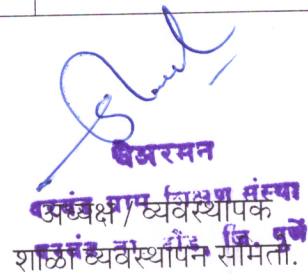 चेअरमन
ग्राम शिक्षण संस्था
अध्यक्ष / व्यवस्थापक
ता. दौंड, जि. पुणे
शाळा व्यवस्थापन समिती.